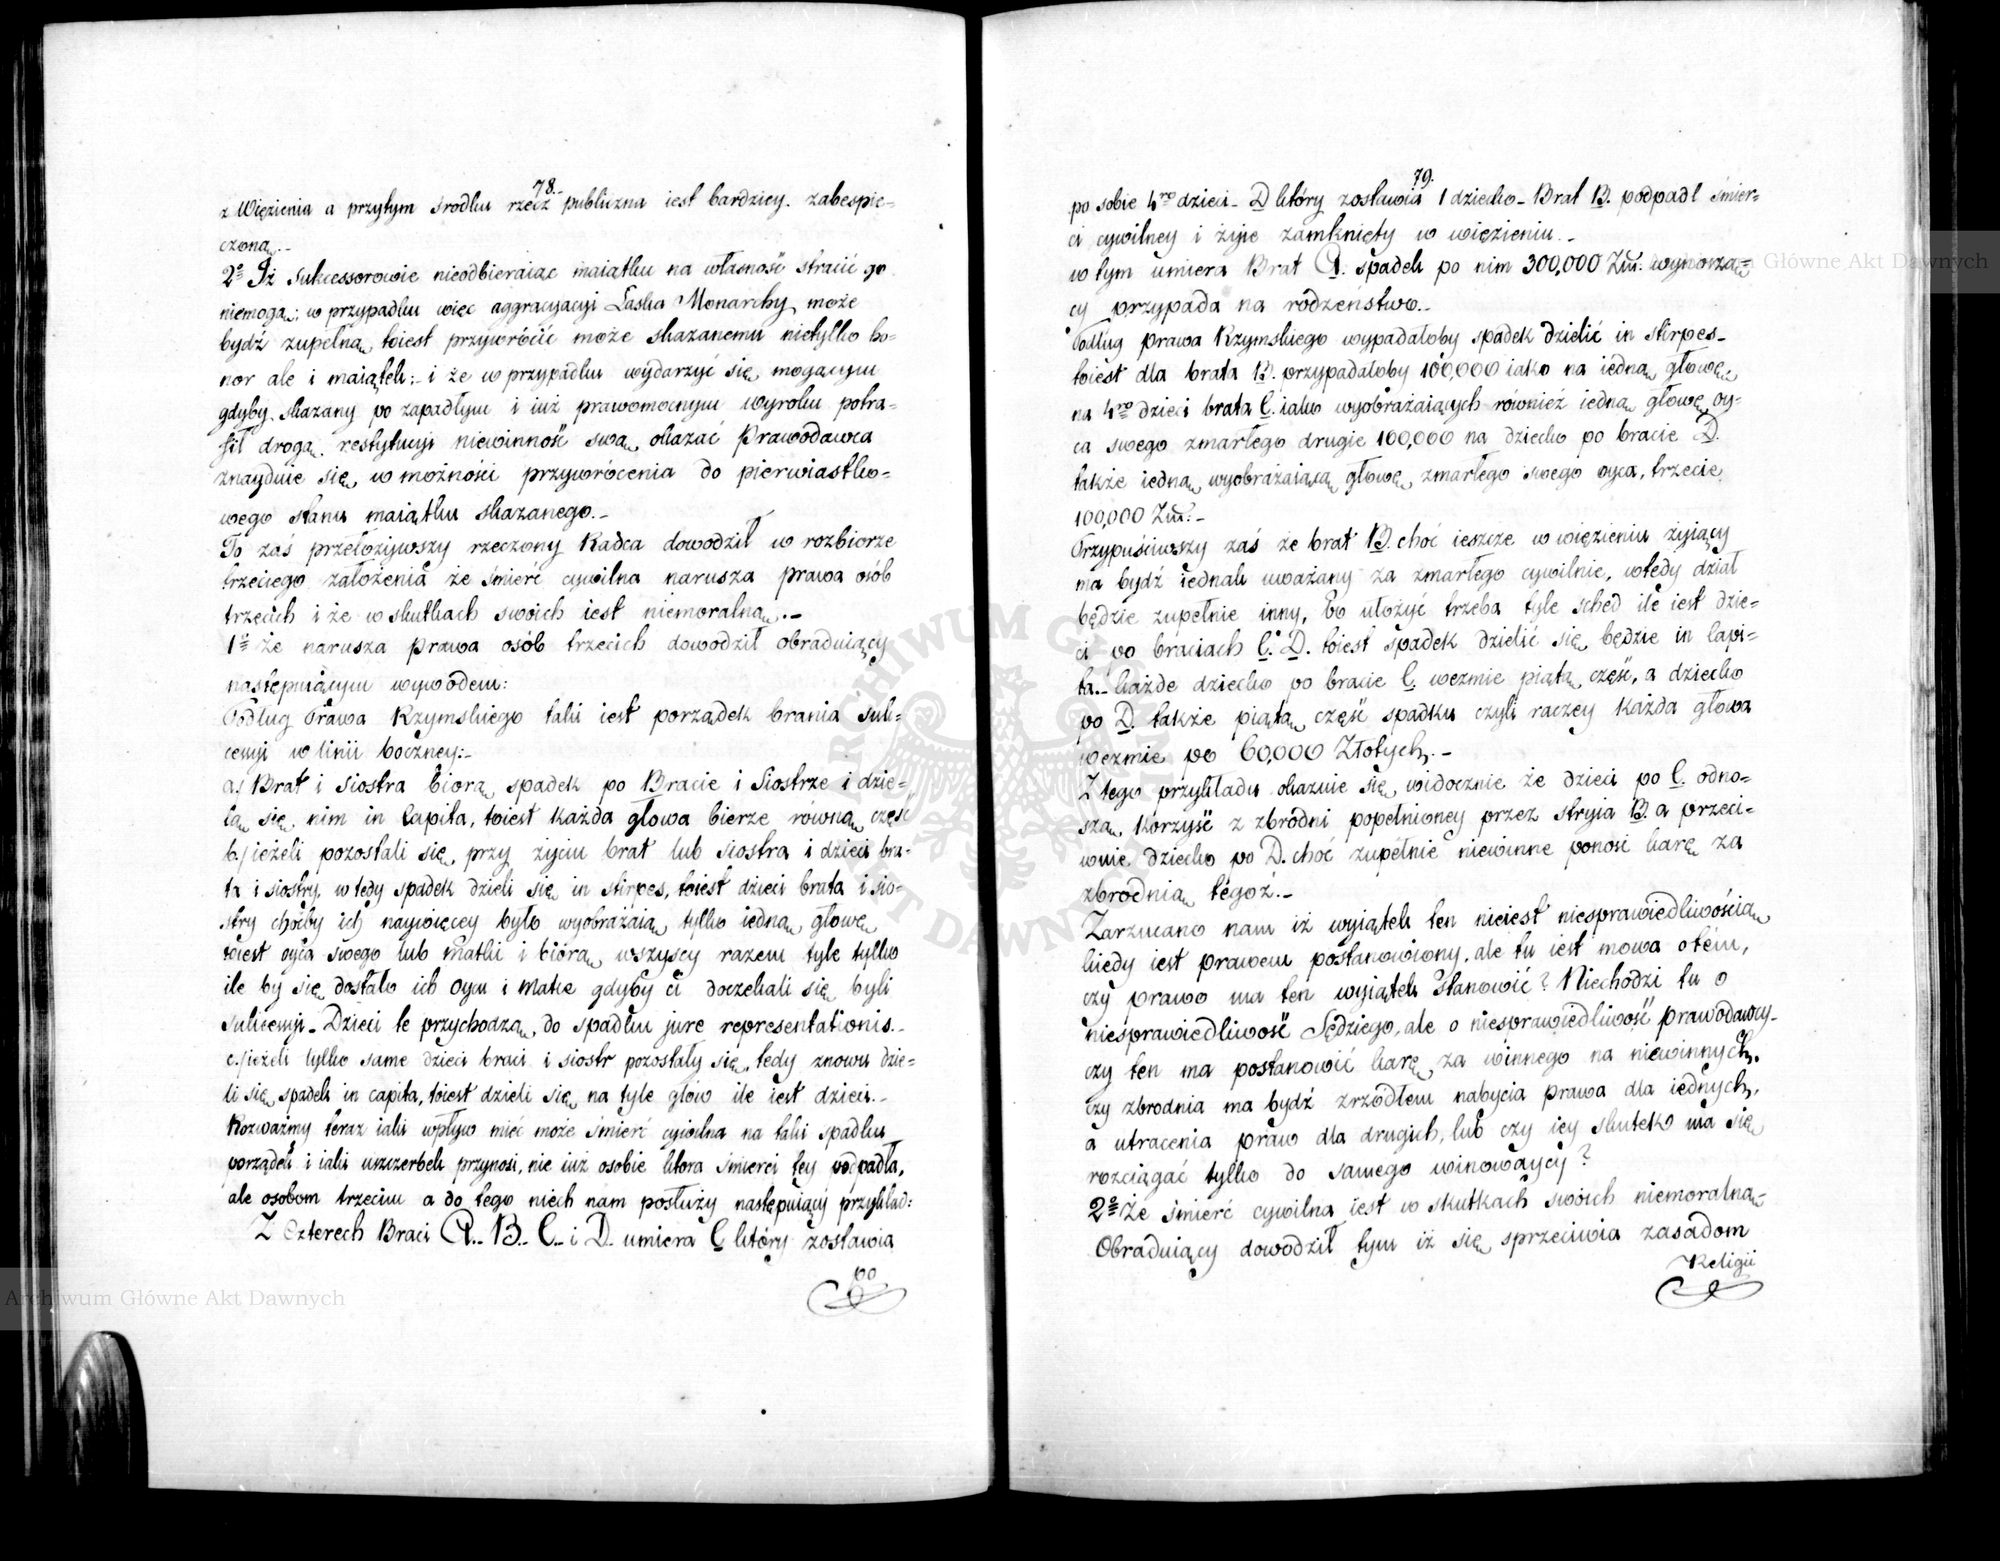 78.
z Więzienia a przytym środku rzecz publiczna iest bardziey zabespie=
czoną.-
2º Iż Sukcessorowie nieodbieraiąc maiątku na własność stracić go
niemogą; w przypadku więc aggracyacyi Łaska Monarchy może
bydź zupełną, toiest przywrócić może skazanemu nietylko ho=
nor ale i maiątek:- i że w przypadku wydarzyć się mogącym
gdyby skazany po zapadłym i iuż prawomocnym wyroku potra=
fił drogą restytucyi niewinność swą okazać Prawodawca
znayduie się w możności przywrócenia do pierwiastko=
wego stanu maiątku skazanego.-
To zaś przełożywszy rzeczony Radca dowodził w rozbiorze
trzeciego założenia że śmierć cywilna narusza prawa osób
trzecich i że w skutkach swoich iest niemoralną.-
1º że narusza Prawa osób trzecich dowodził obraduiący
następuiącym wywodem:
Podług Prawa Rzymskiego taki iest porządek brania suk=
cessyi w linii boczney:-
a.) Brat i Siostra biorą spadek po Bracie i Siostrze i dzie=
lą się nim in Capita, toiest każda głowa bierze równą część
b.) ieżeli pozostali się przy życiu brat lub siostra i dzieci bra=
ta i siostry, wtedy spadek dzieli się in stirpes, toiest dzieci brata i sio=
stry choćby ich naywięcey było wyobrażaią tylko iedną głowę
toiest oyca swego lub Matki i biorą wszyscy razem tyle tylko
ile by się dostało ich Oycu i Matce gdyby ci doczekali się byli
sukcessyi- Dzieci te przychodzą do spadku jure representationis.-
c.) ieżeli tylko same dzieci braci i siostr pozostały się, tedy znowu dzie=
li się spadek in capita, toiest dzieli się na tyle głów ile iest dzieci.-
Rozważmy teraz iaki wpływ mieć może śmierć cywilna na taki spadku
porządek i iaki uszczerbek przynosi, nie iuż osobie która śmierci tey podpadła,
ale osobom trzecim a do tego niech nam posłuży następuiący przykład:
Z Czterech Braci A.. B.. C.. i D. umiera C który zostawia
po
79.
po sobie 4ro dzieci- D który zostawia 1 dziecko- Brat B. podpadł śmier=
ci cywilney i żyie zamknięty w więzieniu.-
w tym umiera Brat A. spadek po nim 300,000 Złł: wynoszą=
cy przypada na rodzeństwo.-
Podług prawa Rzymskiego wypadałoby spadek dzielić in stirpes-
toiest dla brata B. przypadałoby 100,000 iako na iedną głowę,
na 4ro dzieci brata C. iako wyobrażaiących również iedną głowę oy=
ca swego zmarłego drugie 100,000 na dziecko po bracie D.
także iedną wyobrażaiącą głowę zmarłego swego oyca, trzecie
100,000 Złł:-
Przypuściwszy zaś że brat B. choć ieszcze w więzieniu żyiący
ma bydź iednak uważany za zmarłego cywilnie, wtedy dział
będzie zupełnie inny, bo ułożyć trzeba tyle sched ile iest dzie=
ci po braciach C. D. toiest spadek dzielić się będzie in capi=
ta.- każde dziecko po bracie C. wezmie piątą część, a dziecko
po D. także piątą część spadku czyli raczey każda głowa
wezmie po 60,000 Złotych.-
Z tego przykładu okazuie się widocznie że dzieci po C. odno=
szą korzyść z zbrodni popełnioney przez stryia B. a przeci=
wnie dziecko po D. choć zupełnie niewinne ponosi karę za
zbrodnią tegoż.-
Zarzucano nam iż wyiątek ten nieiest niesprawiedliwością
kiedy iest prawem postanowiony, ale tu iest mowa o tém,
czy prawo ma ten wyiątek stanowić? Niechodzi tu o
niesprawiedliwość Sędziego, ale o niesprawiedliwość prawodawcy-
czy ten ma postanowić karę za winnego na niewinnych,
czy zbrodnia ma bydź zrzódłem nabycia prawa dla iednych,
a utracenia praw dla drugich, lub czy iey skutek ma się
rozciągać tylko do samego winowaycy?
2º Że śmierć cywilna iest w skutkach swoich niemoralną-
Obraduiący dowodził tym iż się sprzeciwia zasadom
Religii
Archiwum Główne Akt Dawnych
Archiwum Główne Akt Dawnych
ARCHIWUM GŁÓWNE AKT DAWNYCH